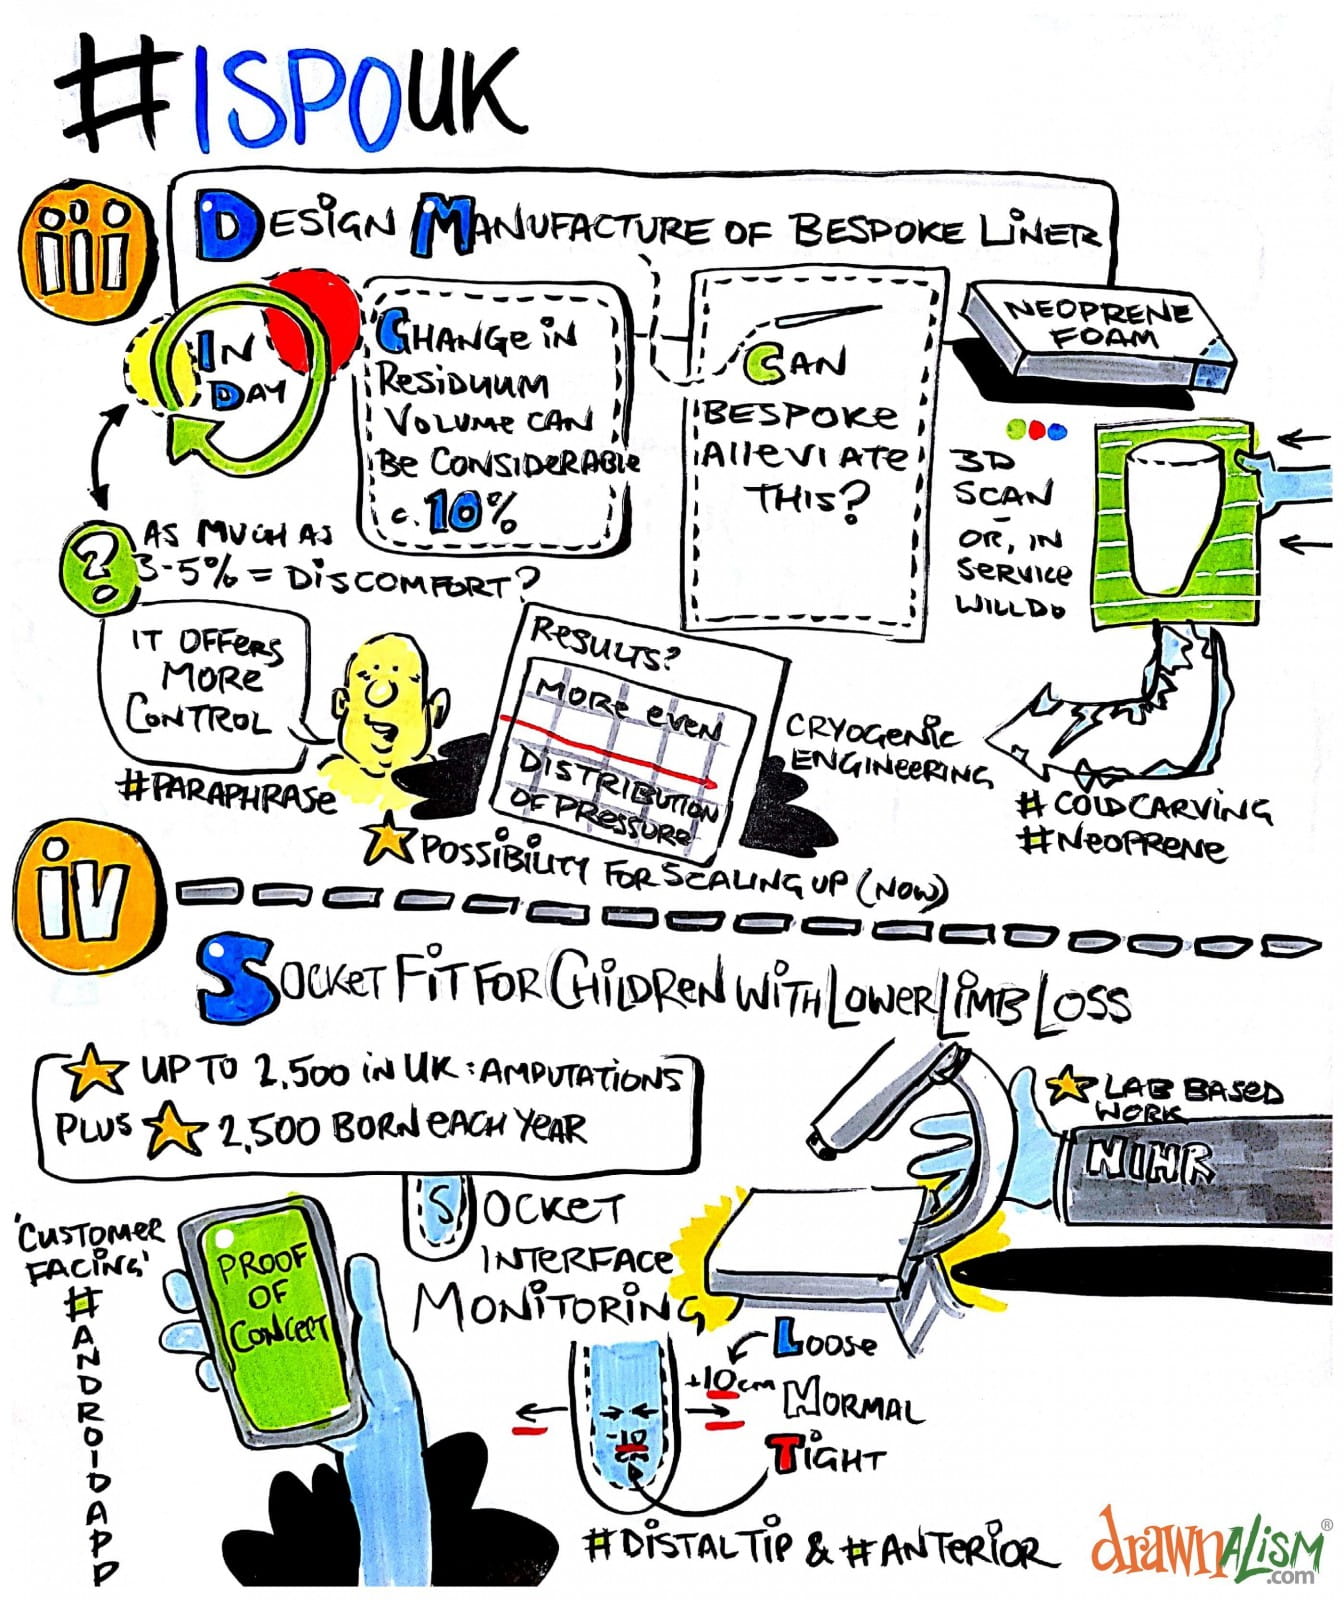 #ISPOUK
iii
DESIGN MANUFACTURE OF BESPOKE LINER
IN
DAY
CHANGE IN
RESIDUUM
VOLUME CAN
BE CONSIDERABLE
c. 10%
CAN
BESPOKE
ALLEVIATE
THIS?
NEOPRENE
FOAM
3D
SCAN
-
OR, IN
SERVICE
WILL DO
?
AS MUCH AS
3-5% = DISCOMFORT?
IT OFFERS
MORE
CONTROL
#PARAPHRASE
RESULTS?
MORE EVEN
DISTRIBUTION
OF PRESSURE
CRYOGENIC
ENGINEERING
# COLDCARVING
#NEOPRENE
POSSIBILITY FOR SCALING UP (NOW)
iv
SOCKET FIT FOR CHILDREN WITH LOWER LIMB LOSS
UP TO 2,500 IN UK: AMPUTATIONS
PLUS 2,500 BORN EACH YEAR
LAB BASED
WORK
NIHR
'CUSTOMER
FACING'
#ANDROIDAPP
PROOF
OF
CONCEPT
SOCKET
INTERFACE
MONITORING
LOOSE
+10cm
NORMAL
TIGHT
-10
cm
#DISTALTIP & #ANTERIOR
drawnalism®
.com